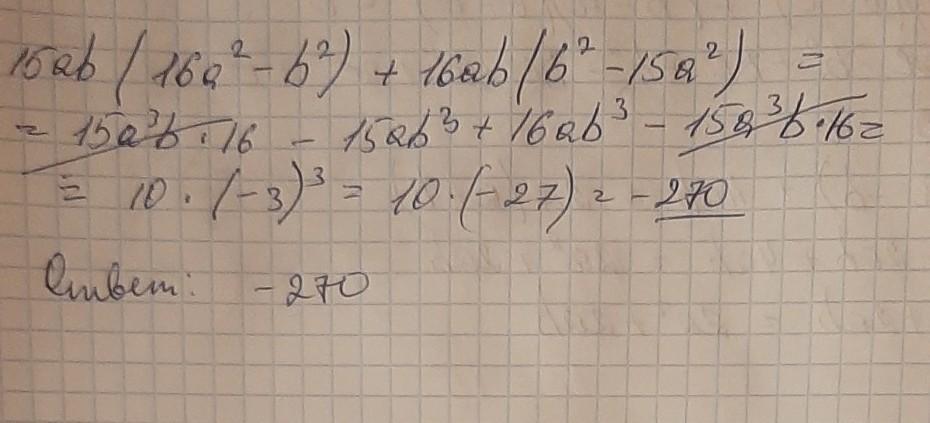 15ab(16a² - b²) + 16ab(b² - 15a²) =
= 15a³b · 16 - 15ab³ + 16ab³ - 15a³b · 16 =
= 10 · (-3)³ = 10 · (-27) = -270
Ответ: -270